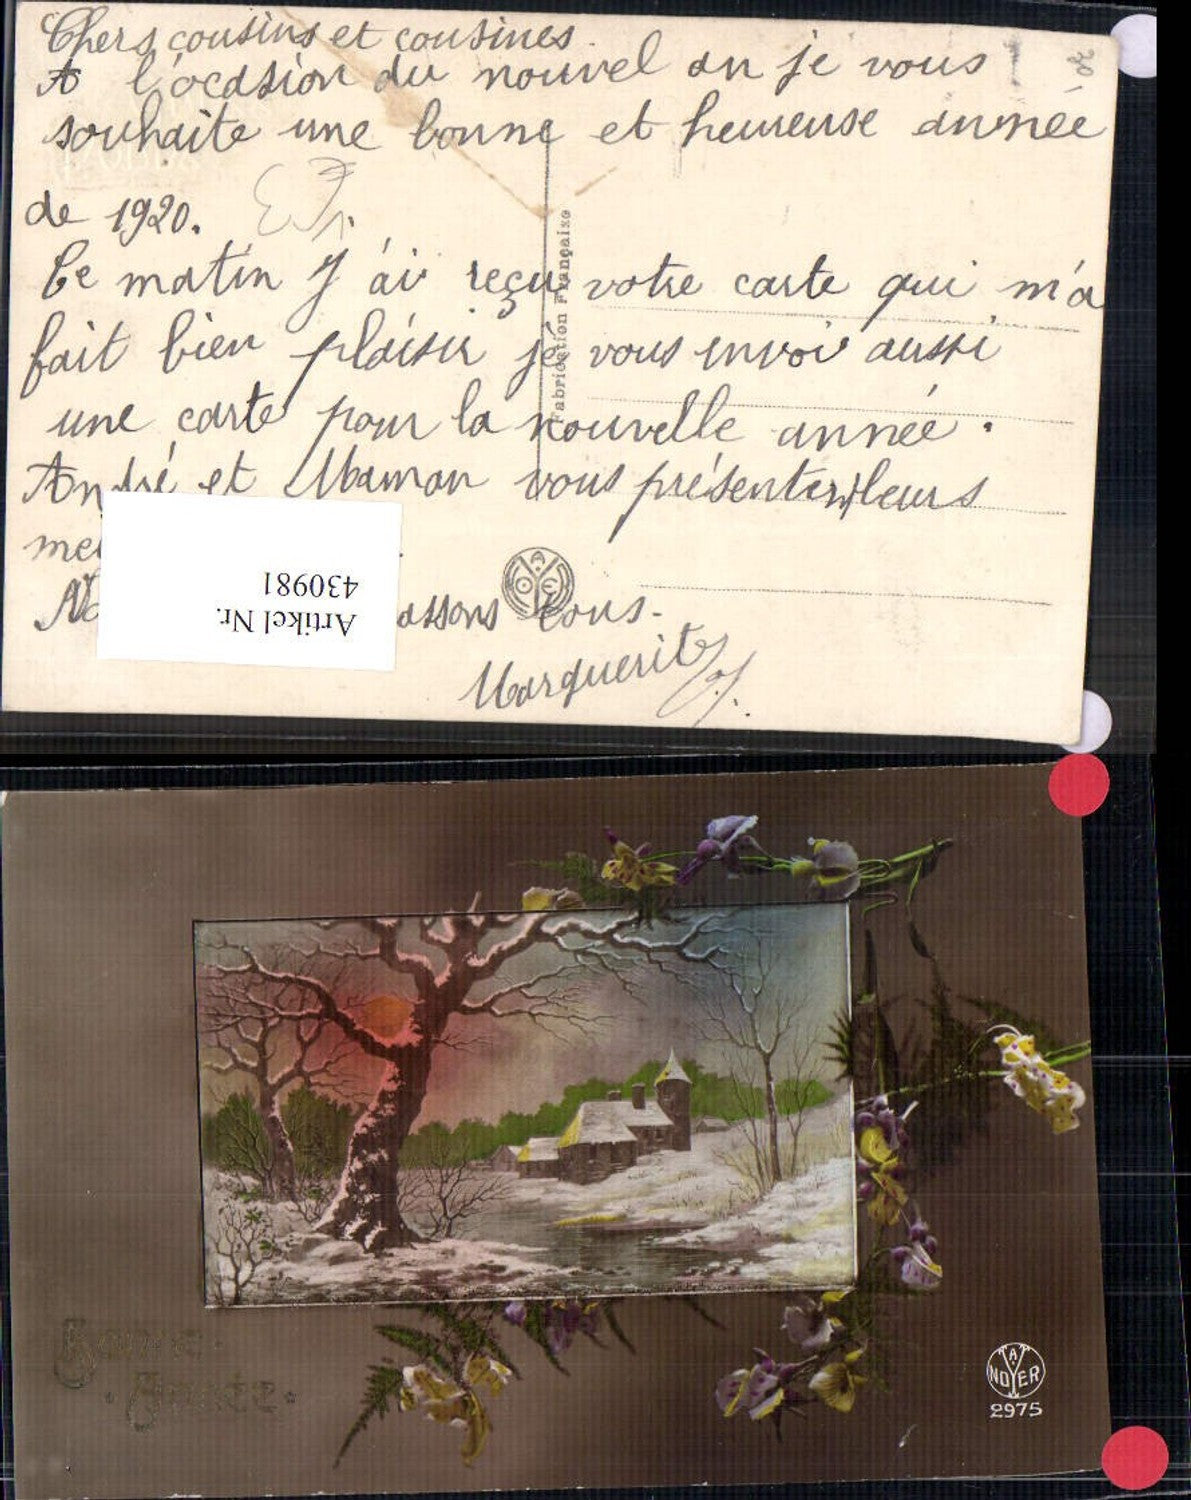 Chers cousins et cousines.
A l'ocasion du nouvel an je vous
souhaite une bonne et heureuse année
de 1920.
Ce matin J'ai reçu votre carte qui m'a
fait bien plaisir je vous envoi aussi
une carte pour la nouvelle année.
André et Maman vous présentent leurs
Marguerite
tous.
Fabrication Française
Artikel Nr.
430981
Bonne
Année
A
NOYER
2975